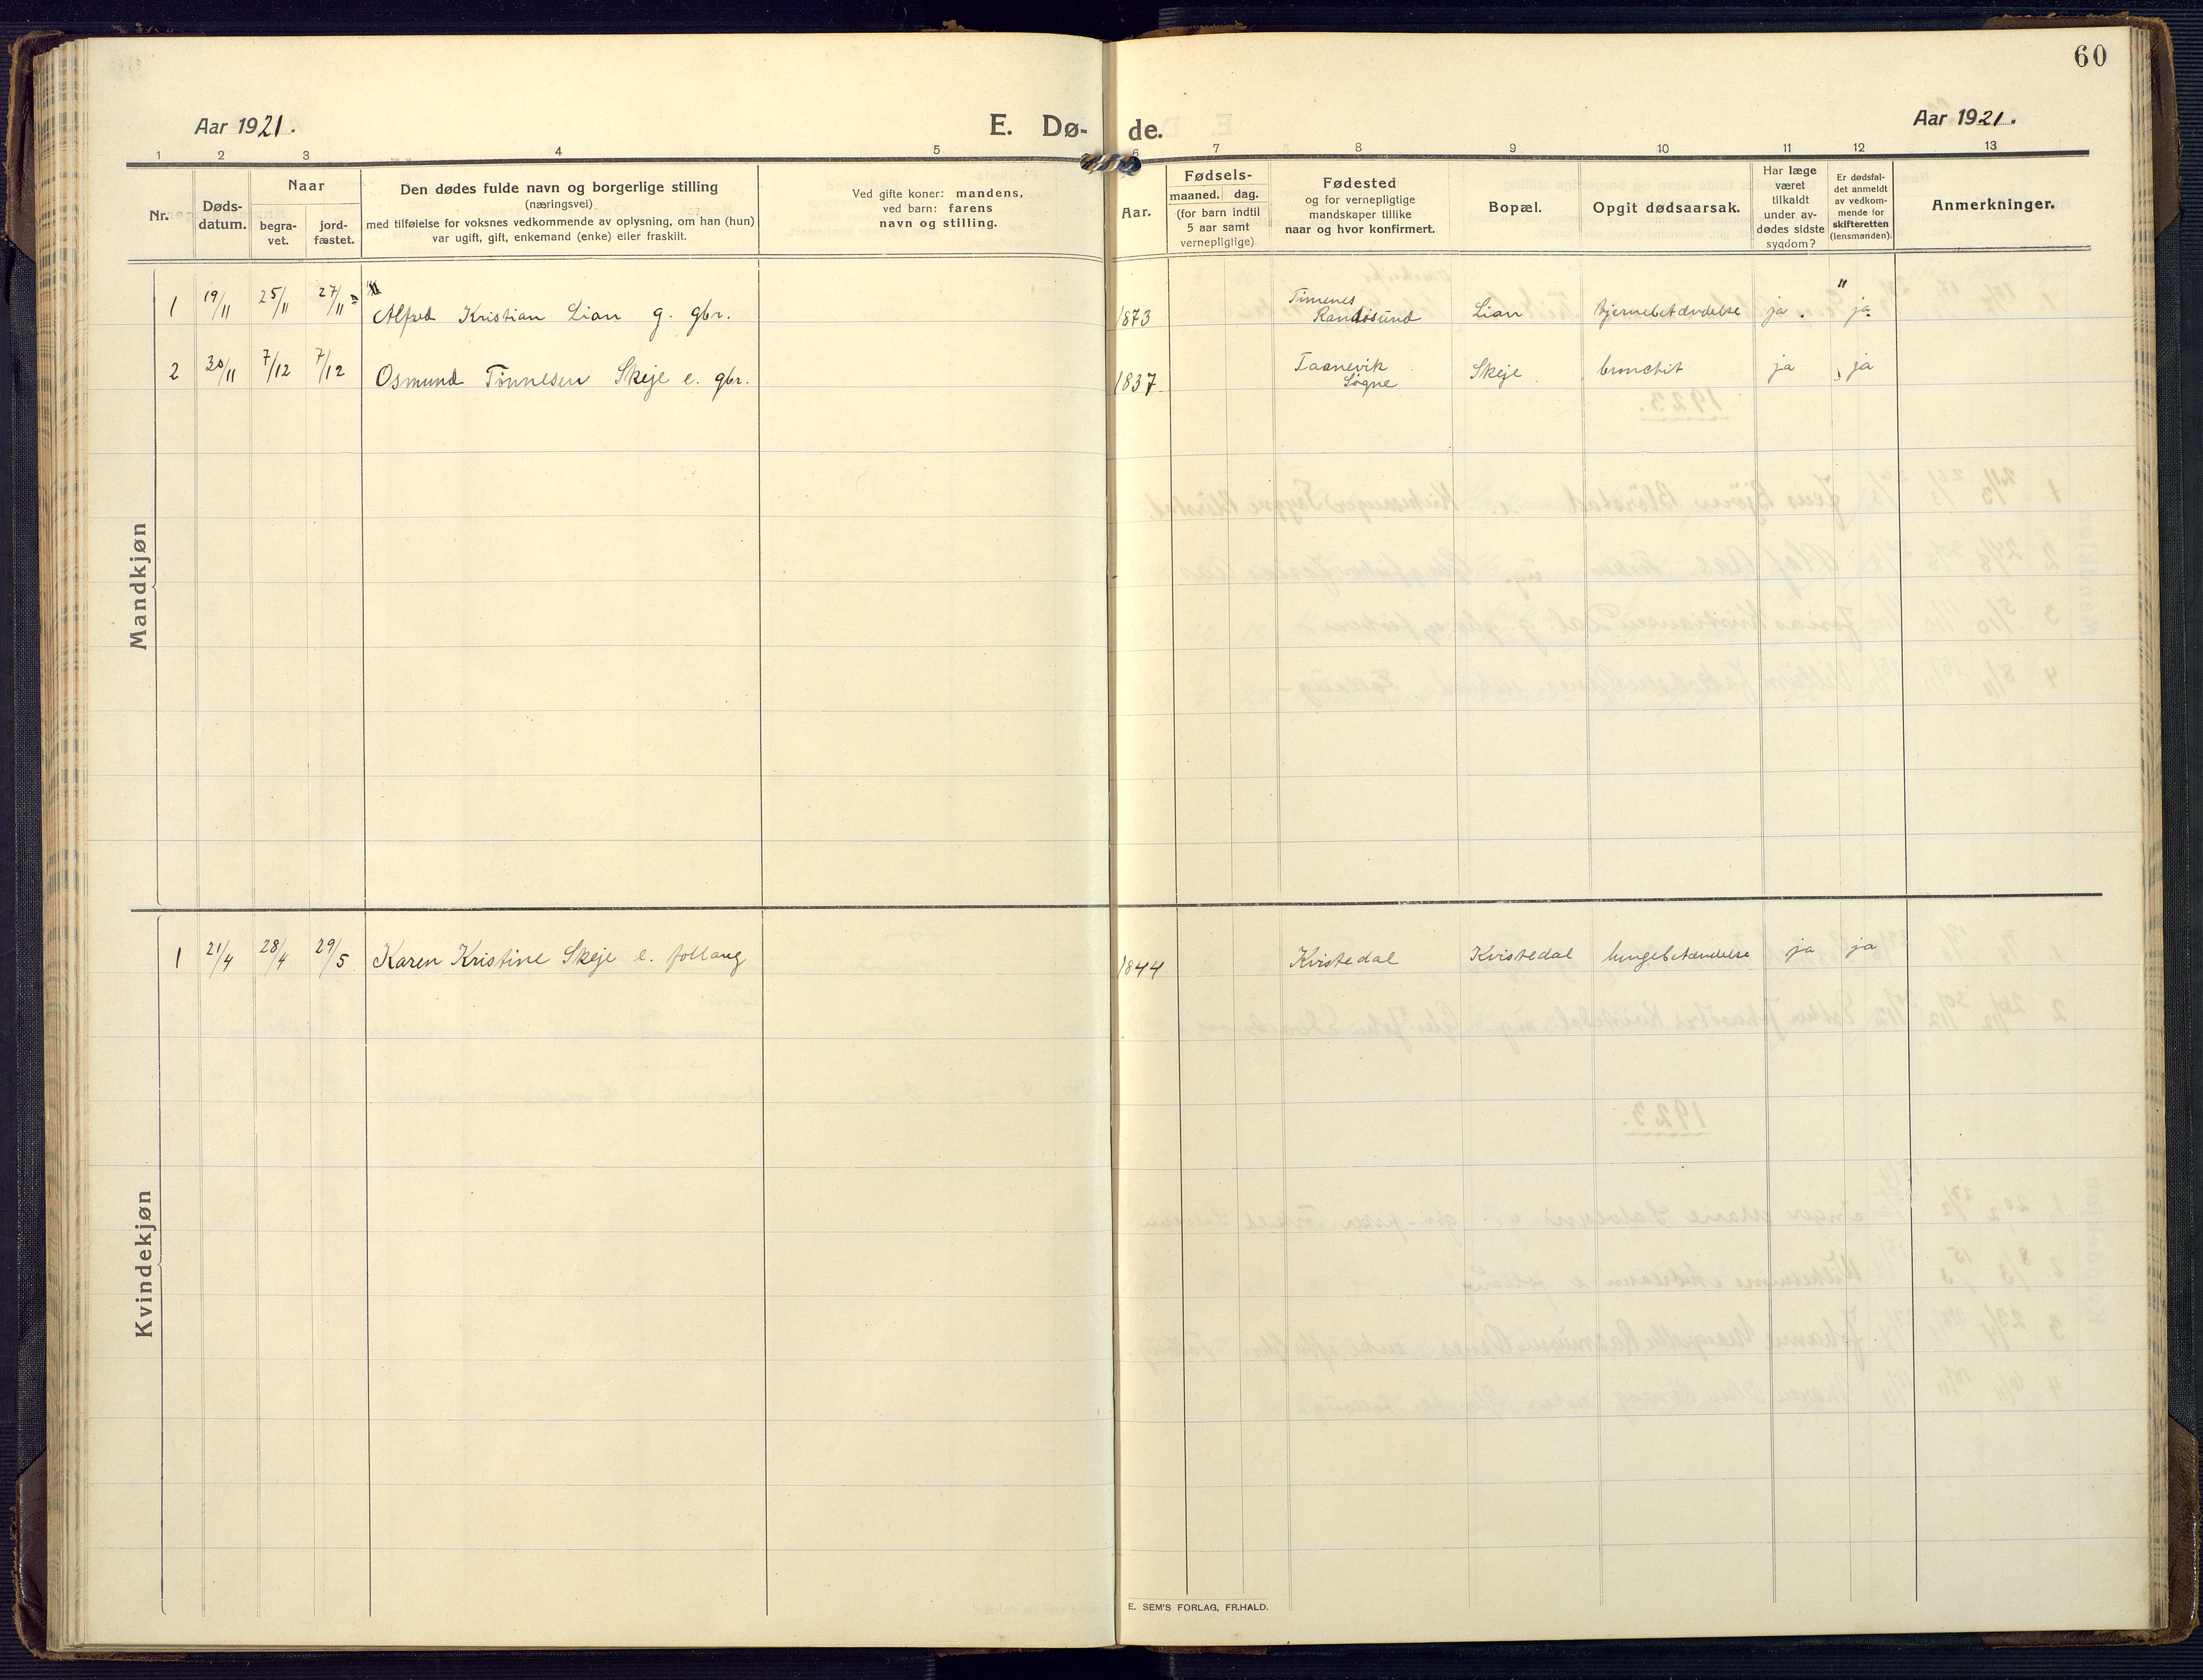 60
Aar 1921.
E. Dø-
de.
Aar 1921.
1 2 3 4 5 6 7 8 9 10 11 12 13
Nr.
Døds-
datum.
Naar
begra-
vet.
jord-
fæstet.
Den dødes fulde navn og borgerlige stilling
(næringsvei)
med tilføielse for voksnes vedkommende av oplysning, om han (hun)
var ugift, gift, enkemand (enke) eller fraskilt.
Ved gifte koner: mandens,
ved barn: farens
navn og stilling.
Fødsels-
Aar.
maaned. dag.
(for barn indtil
5 aar samt
vernepligtige)
Fødested
og for vernepligtige
mandskaper tillike
naar og hvor konfirmert.
Bopæl.
Opgit dødsaarsak.
Har læge
været
tilkaldt
under av-
dødes sidste
sygdom?
Er dødsfal-
det anmeldt
av vedkom-
mende for
skifteretten
(lensmanden).
Anmerkninger.
Mandkjøn
1 19/11 25/11 27/11 Alfred Kristian Lian g. gbr. 1873 Timenes
Randøsund Lian hjernebetændelse ja. ja.
2 30/11 7/12 7/12 Osmund Tønnesen Skeje e. gbr. 1837 Taanevik
Søgne Skeje bronchit ja ja
Kvindekjøn
1 21/4 28/4 29/5 Karen Kristine Skeje e. follaug 1844 Kvistedal Kvistedal lungebetændelse ja ja
E. SEM'S FORLAG, FR.HALD.